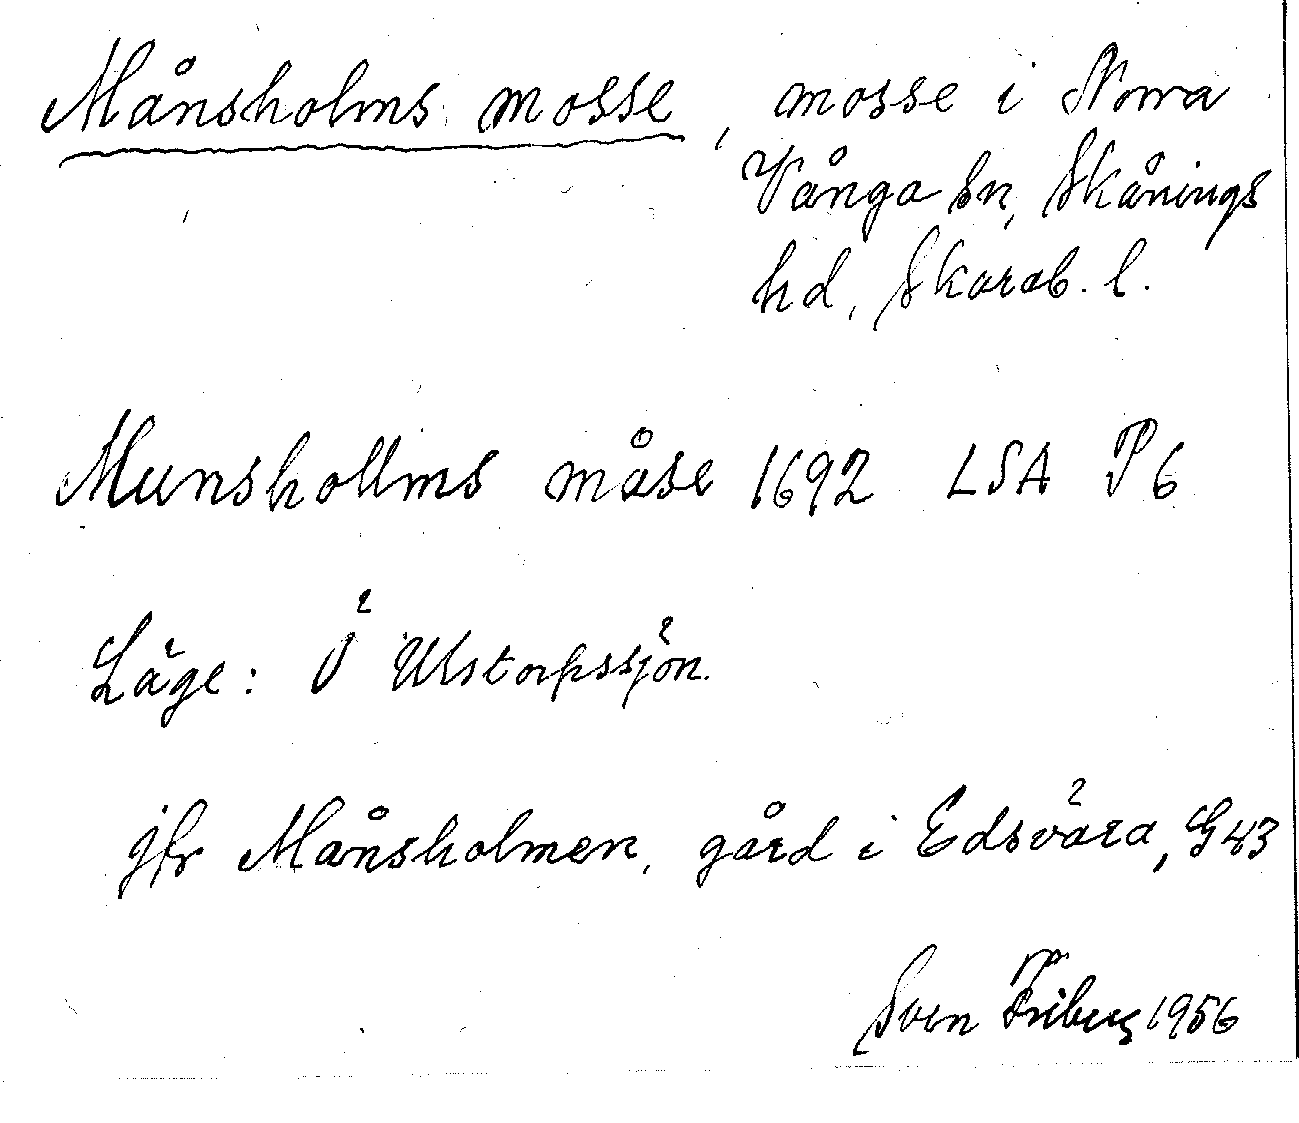 Månsholms mosse, mosse i Norra
Vånga sn, Skånings
hd, Skarab. l.
Munshollms måse 1692 LSA P6
Läge: Ö Ulstorpssjön.
jfr Månsholmen, gård i Edsvära, G43
Sven Friberg 1956